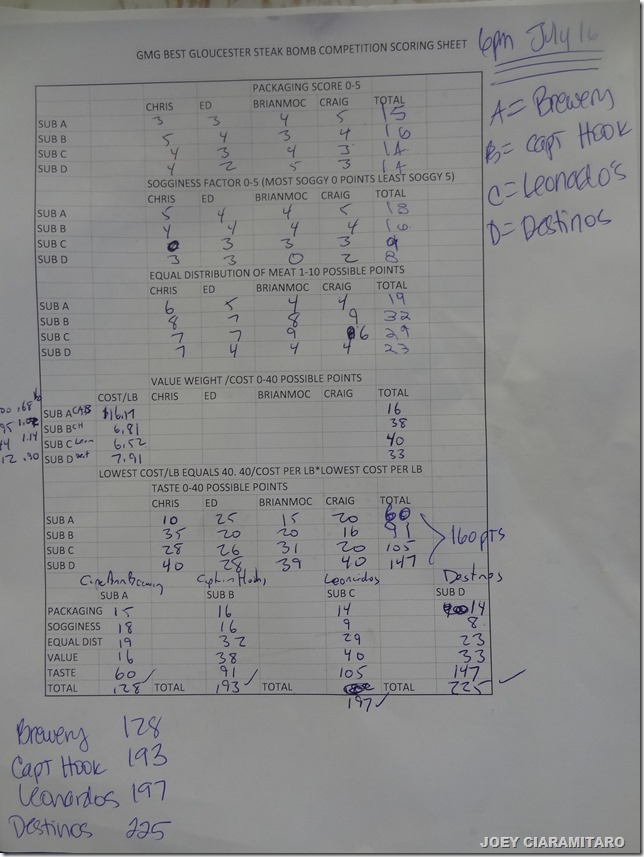 GMG BEST GLOUCESTER STEAK BOMB COMPETITION SCORING SHEET 6pm July 16
A = Brewery
B = Capt Hook
C = Leonados
D = Destinos
PACKAGING SCORE 0-5
CHRIS ED BRIANMOC CRAIG TOTAL
SUB A 3 3 4 5 15
SUB B 5 4 3 4 16
SUB C 4 3 4 3 14
SUB D 4 2 5 3 14
SOGGINESS FACTOR 0-5 (MOST SOGGY 0 POINTS LEAST SOGGY 5)
CHRIS ED BRIANMOC CRAIG TOTAL
SUB A 5 4 4 5 18
SUB B 4 4 4 4 16
SUB C 0 3 3 3 9
SUB D 3 3 0 2 8
EQUAL DISTRIBUTION OF MEAT 1-10 POSSIBLE POINTS
CHRIS ED BRIANMOC CRAIG TOTAL
SUB A 6 5 4 4 19
SUB B 8 7 8 9 32
SUB C 7 7 9 6 29
SUB D 7 4 4 4 23
VALUE WEIGHT /COST 0-40 POSSIBLE POINTS
COST/LB CHRIS ED BRIANMOC CRAIG TOTAL
.68 SUB A CAB $16.17 16
1.02 SUB B CH 6.81 38
1.14 SUB C Leon 6.52 40
12 .90 SUB D 7.91 33
LOWEST COST/LB EQUALS 40. 40/COST PER LB*LOWEST COST PER LB
TASTE 0-40 POSSIBLE POINTS
CHRIS ED BRIANMOC CRAIG TOTAL
SUB A 10 25 15 20 60
SUB B 35 20 20 16 91
SUB C 28 26 31 20 105
SUB D 40 28 39 40 147
160 pts
Cape Ann Brewing Captain Hooks Leonardos Destinos
SUB A SUB B SUB C SUB D
PACKAGING 15 16 14 14
SOGGINESS 18 16 9 8
EQUAL DIST 19 32 29 23
VALUE 16 38 40 33
TASTE 60 91 105 147
TOTAL 128 TOTAL 193 TOTAL TOTAL 225
197
Brewery 128
Capt Hook 193
Leonardos 197
Destinos 225
JOEY CIARAMITARO